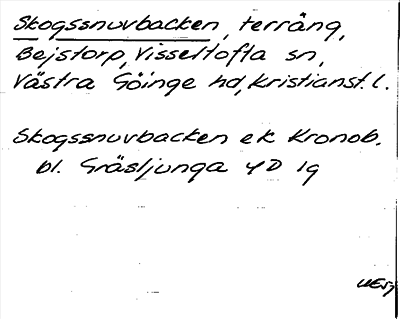 Skogssnuvbacken, terräng,
Bejstorp, Visseltofta sn,
Västra Göinge hd, Kristianst. l.
Skogssnuvbacken ek Kronob.
bl. Gräsljunga 4D 1g